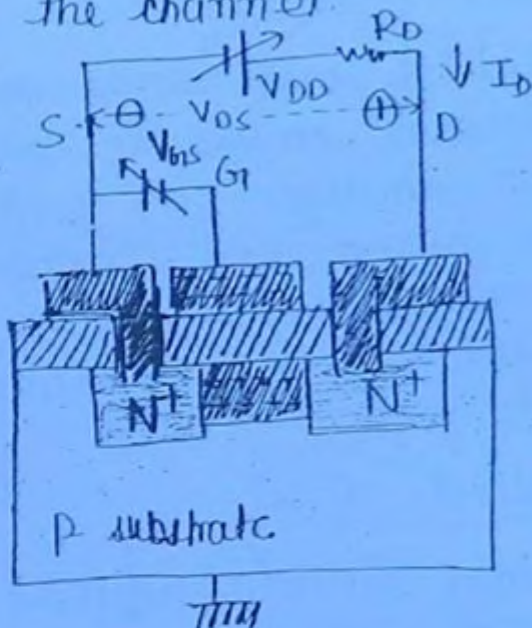 the channel.
RD
VDD
ID
S
⊖
VDS
⊕
D
VGS
G
N+
N+
p substrate